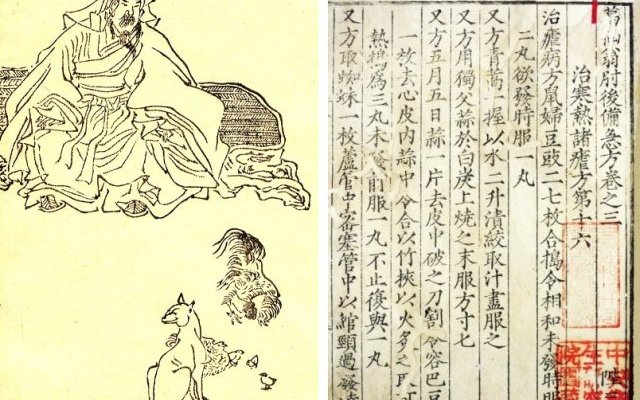 葛仙翁肘後備急方卷之三
治寒熱諸瘧方第十六
治瘧病方鼠婦豆豉二七枚合搗令相和未發時服
二丸欲發時服一丸
又方青蒿一握以水二升漬絞取汁盡服之
又方用獨父蒜於白炭上燒之末服方寸七
又方五月五日蒜一片去皮中破之刀割令容巴豆
一枚去心皮內蒜中令合以竹挾以火炙之取可
熱搗爲三丸未發前服一丸不止復與一丸
又方取蜘蛛一枚蘆管中密塞管中以綰頸過發時